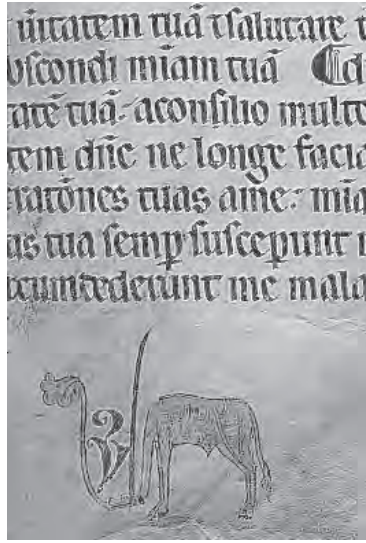 ūitatem tuā ⁊salutare t
bscondi miam tuā ¶d
tatē tuā· aconsilio multo
tem dn̄e ne longe facia
ratōnes tuas ame: mia
as tua semp̱ susceꝑunt
cumdederunt me mala